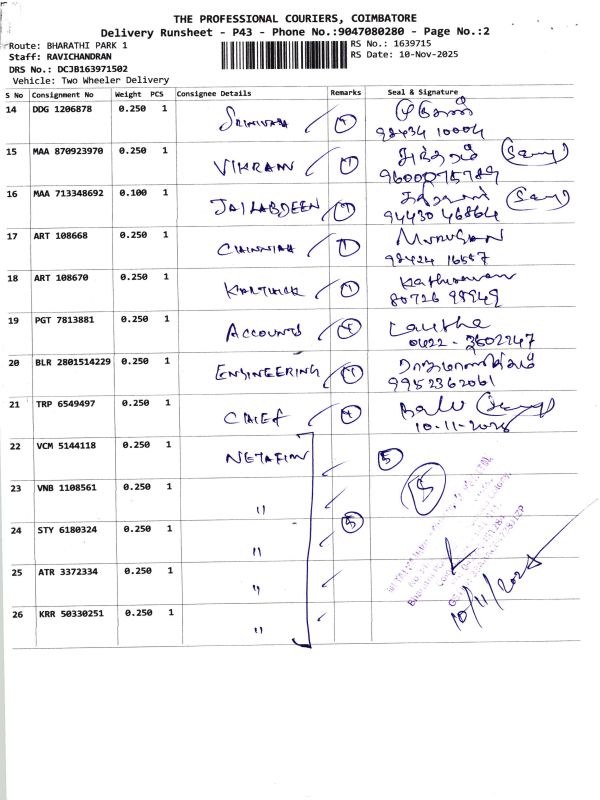 THE PROFESSIONAL COURIERS, COIMBATORE
Delivery Runsheet - P43 - Phone No.:9047080280 - Page No.:2
Route: BHARATHI PARK 1 RS No.: 1639715
Staff: RAVICHANDRAN RS Date: 10-Nov-2025
DRS No.: DCJB163971502
Vehicle: Two Wheeler Delivery
S No Consignment No Weight PCS Consignee Details Remarks Seal & Signature
14 DDG 1206878 0.250 1 SRINIVASA 1
98434 10004
15 MAA 870923970 0.250 1 VIKRAM 1
16 MAA 713348692 0.100 1 JAILABDEEN 1
94430 46864
17 ART 108668 0.250 1 CHINNIAH 1 MURUGAN
98424 16557
18 ART 108670 0.250 1 KARTHICK 1 Kathiravan
80726 98949
19 PGT 7813881 0.250 1 ACCOUNTS 1 Lautha
0422 - 3602247
20 BLR 2801514229 0.250 1 ENGINEERING 1
9952362061
21 TRP 6549497 0.250 1 CHIEF 1 Balu
10-11-2025
22 VCM 5144118 0.250 1 NETAFIM 5
23 VNB 1108561 0.250 1 " 5
24 STY 6180324 0.250 1 " 5
25 ATR 3372334 0.250 1 "
26 KRR 50330251 0.250 1 "
10/11/2025